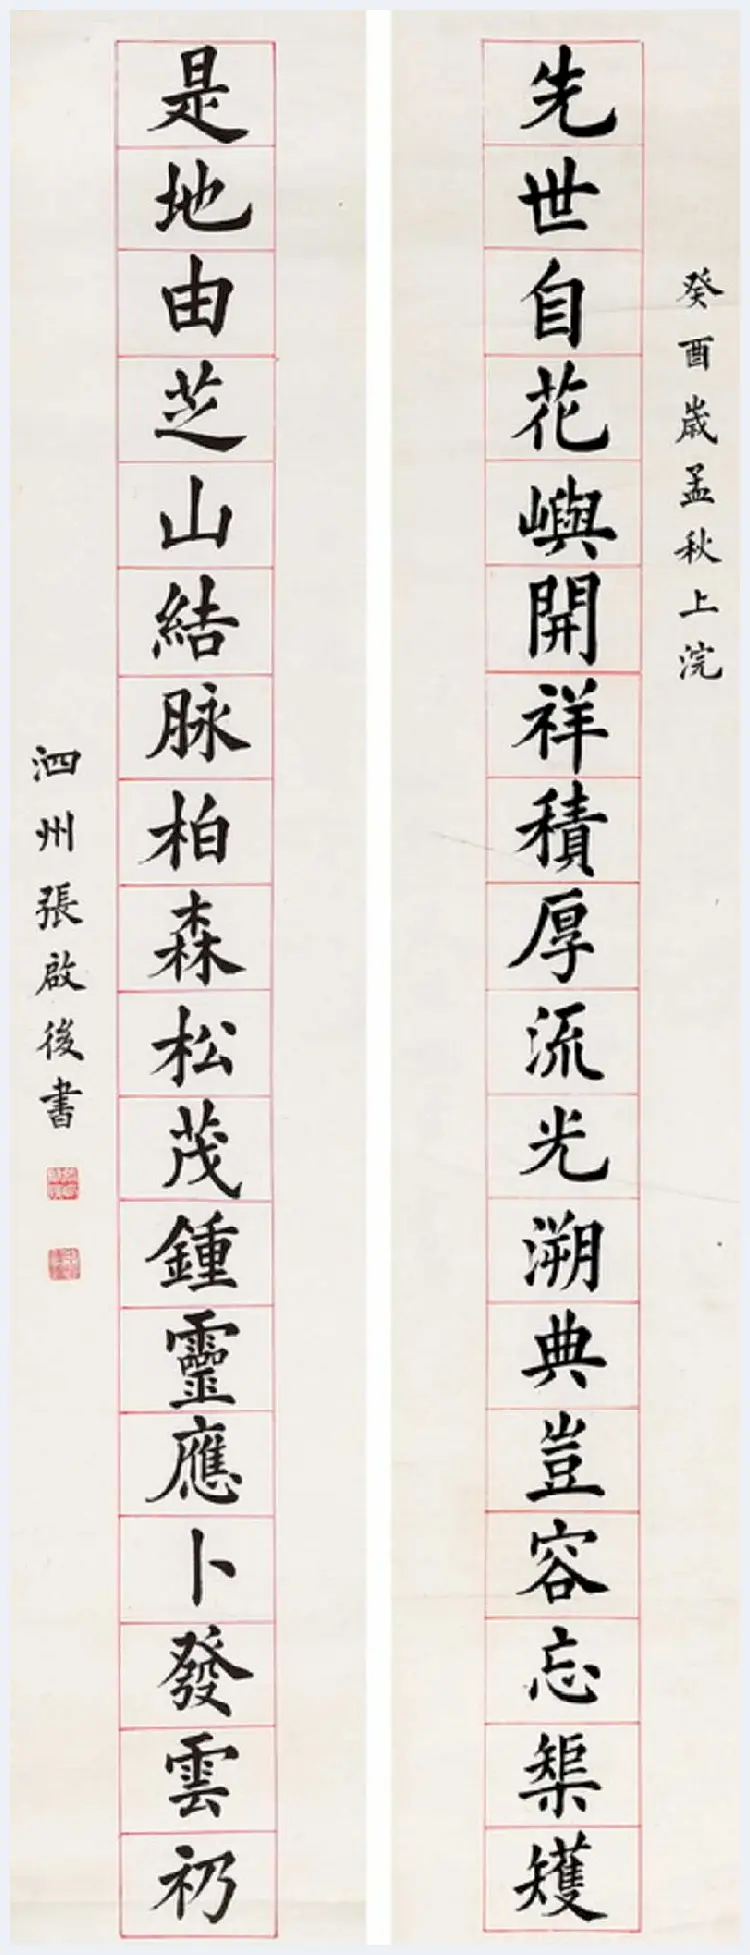 癸酉歲孟秋上浣
先世自花嶼開祥積厚流光溯典豈容忘榘矱
是地由芝山結脉柏森松茂鍾靈應卜發雲礽
泗州張啟後書